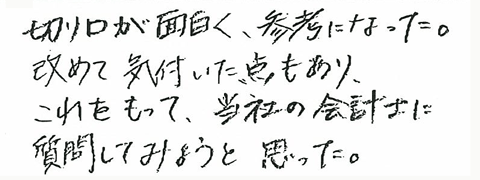 切り口が面白く、参考になった。
改めて気付いた点もあり、
これをもって、当社の会計士に
質問してみようと思った。